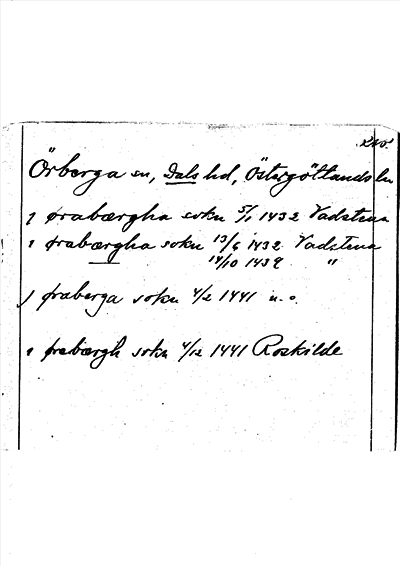 Örberga sn, Dals hd, Östergötlands ln
J ørabærgha sokn 5/1 1432 Vadstena
ı ørabærgha sokn 13/6 1432 Vadstena
14/10 1439 "
J øraberga sokn 4/2 1441 u.o.
ı ørabærgh sokn 4/12 1441 Roskilde